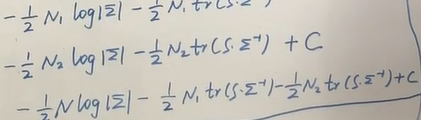 -½ N₁ log|Σ| - ½ N₁ tr(S·Σ
-½ N₂ log|Σ| - ½ N₂ tr(S·Σ⁻¹) + C
-½ N log|Σ| - ½ N₁ tr(S·Σ⁻¹) - ½ N₂ tr(S·Σ⁻¹) + C